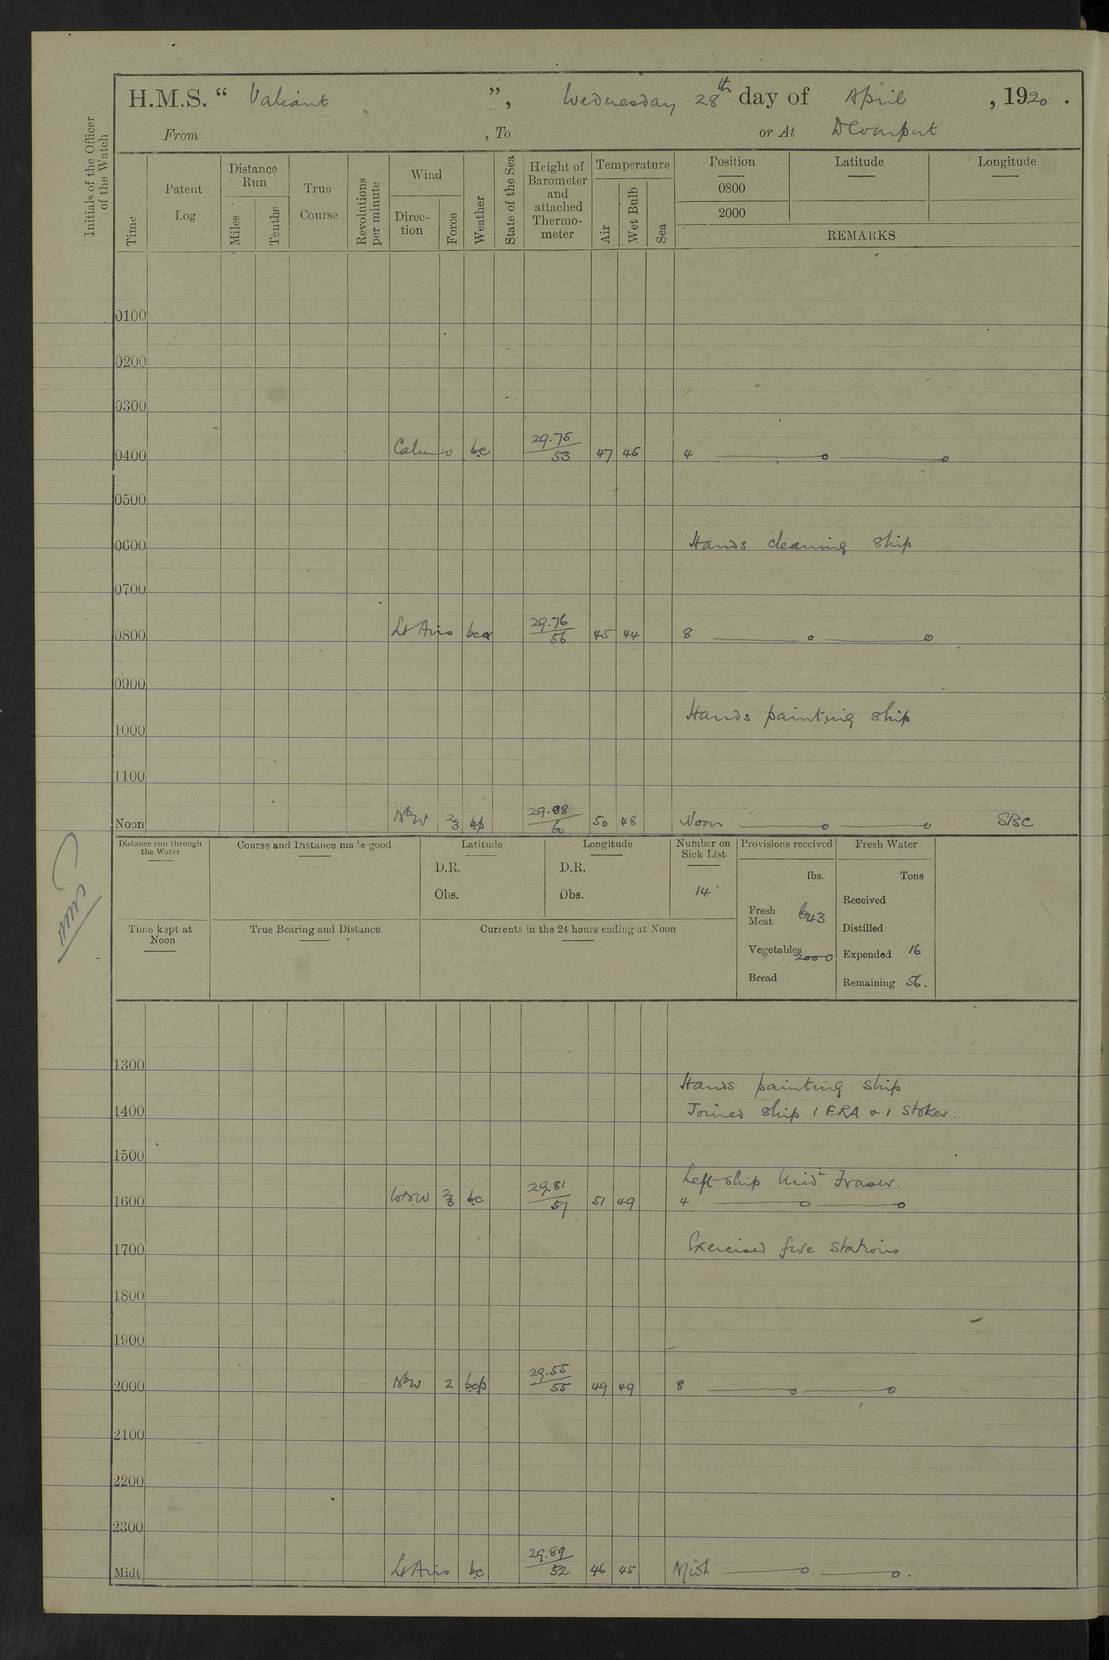 H.M.S. “ Valiant ”, Wednesday 28th day of April , 1920 .
From , To or At Devonport
Initials of the Officer of the Watch
Time
Patent Log
Distance Run
Miles
Tenths
True Course
Revolutions per minute
Wind
Direc- tion
Force
Weather
State of the Sea
Height of Barometer and attached Thermo- meter
Temperature
Air
Wet Bulb
Sea
Position Latitude Longitude
0800
2000
REMARKS
0100
0200
0300
0400 Calm 0 bc 29.75/53 47 45 4 ——o——o
0500
0600 Hands cleaning ship
0700
0800 Lt Airs 29.76/56 45 44 8 ——o——o
0900
Hands painting ship
1000
1100
Noon NbW 2/3 bp 60 50 48 Noon ——o——o SBC
Distance run through the Water
Course and Distance made good
Latitude
D.R.
Obs.
Longitude
D.R.
Obs.
Number on Sick List
14
Provisions received
lbs.
Fresh Meat 643
Vegetables 2000
Bread
Fresh Water
Tons
Received
Distilled
Expended 16
Remaining 56.
Time kept at Noon
True Bearing and Distance
Currents in the 24 hours ending at Noon
1300
Hands painting ship
1400 Joined ship 1 ERA & 1 Stoker.
1500
Left ship Midn Fraser.
1600 2/3 bc 29.81/57 51 49 4 ——o——o
1700 Exercised fire stations
1800
1900
2000 NbW 2 bcp 29.55/55 49 49 8 ——o——o
2100
2200
2300
Midt. Lt Airs bc 29.89/52 46 45 Midt ——o——o.